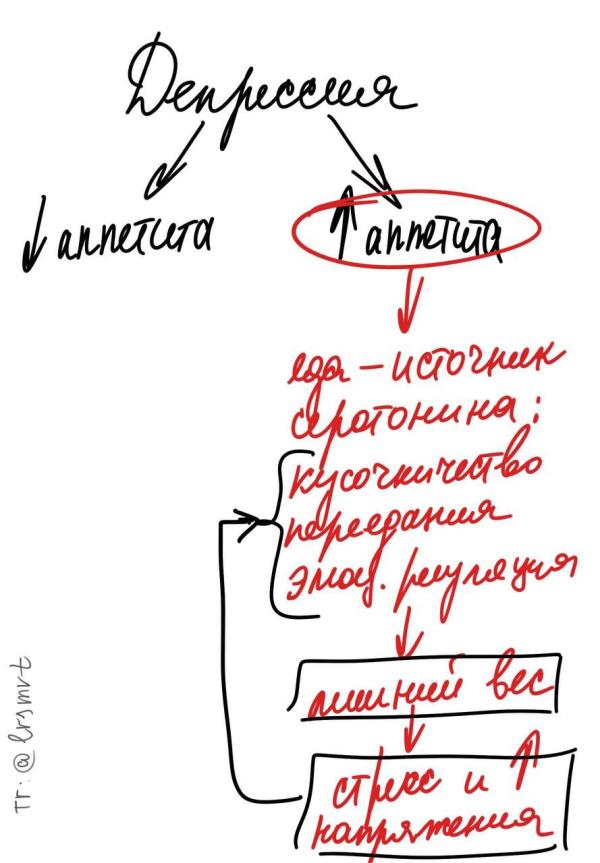 Депрессия
↓ аппетита
↑ аппетита
еда – источник
серотонина:
кусочничество
переедания
эмоц. регуляция
лишний вес
стресс и ↑
напряжения
тг: @lrsmrt